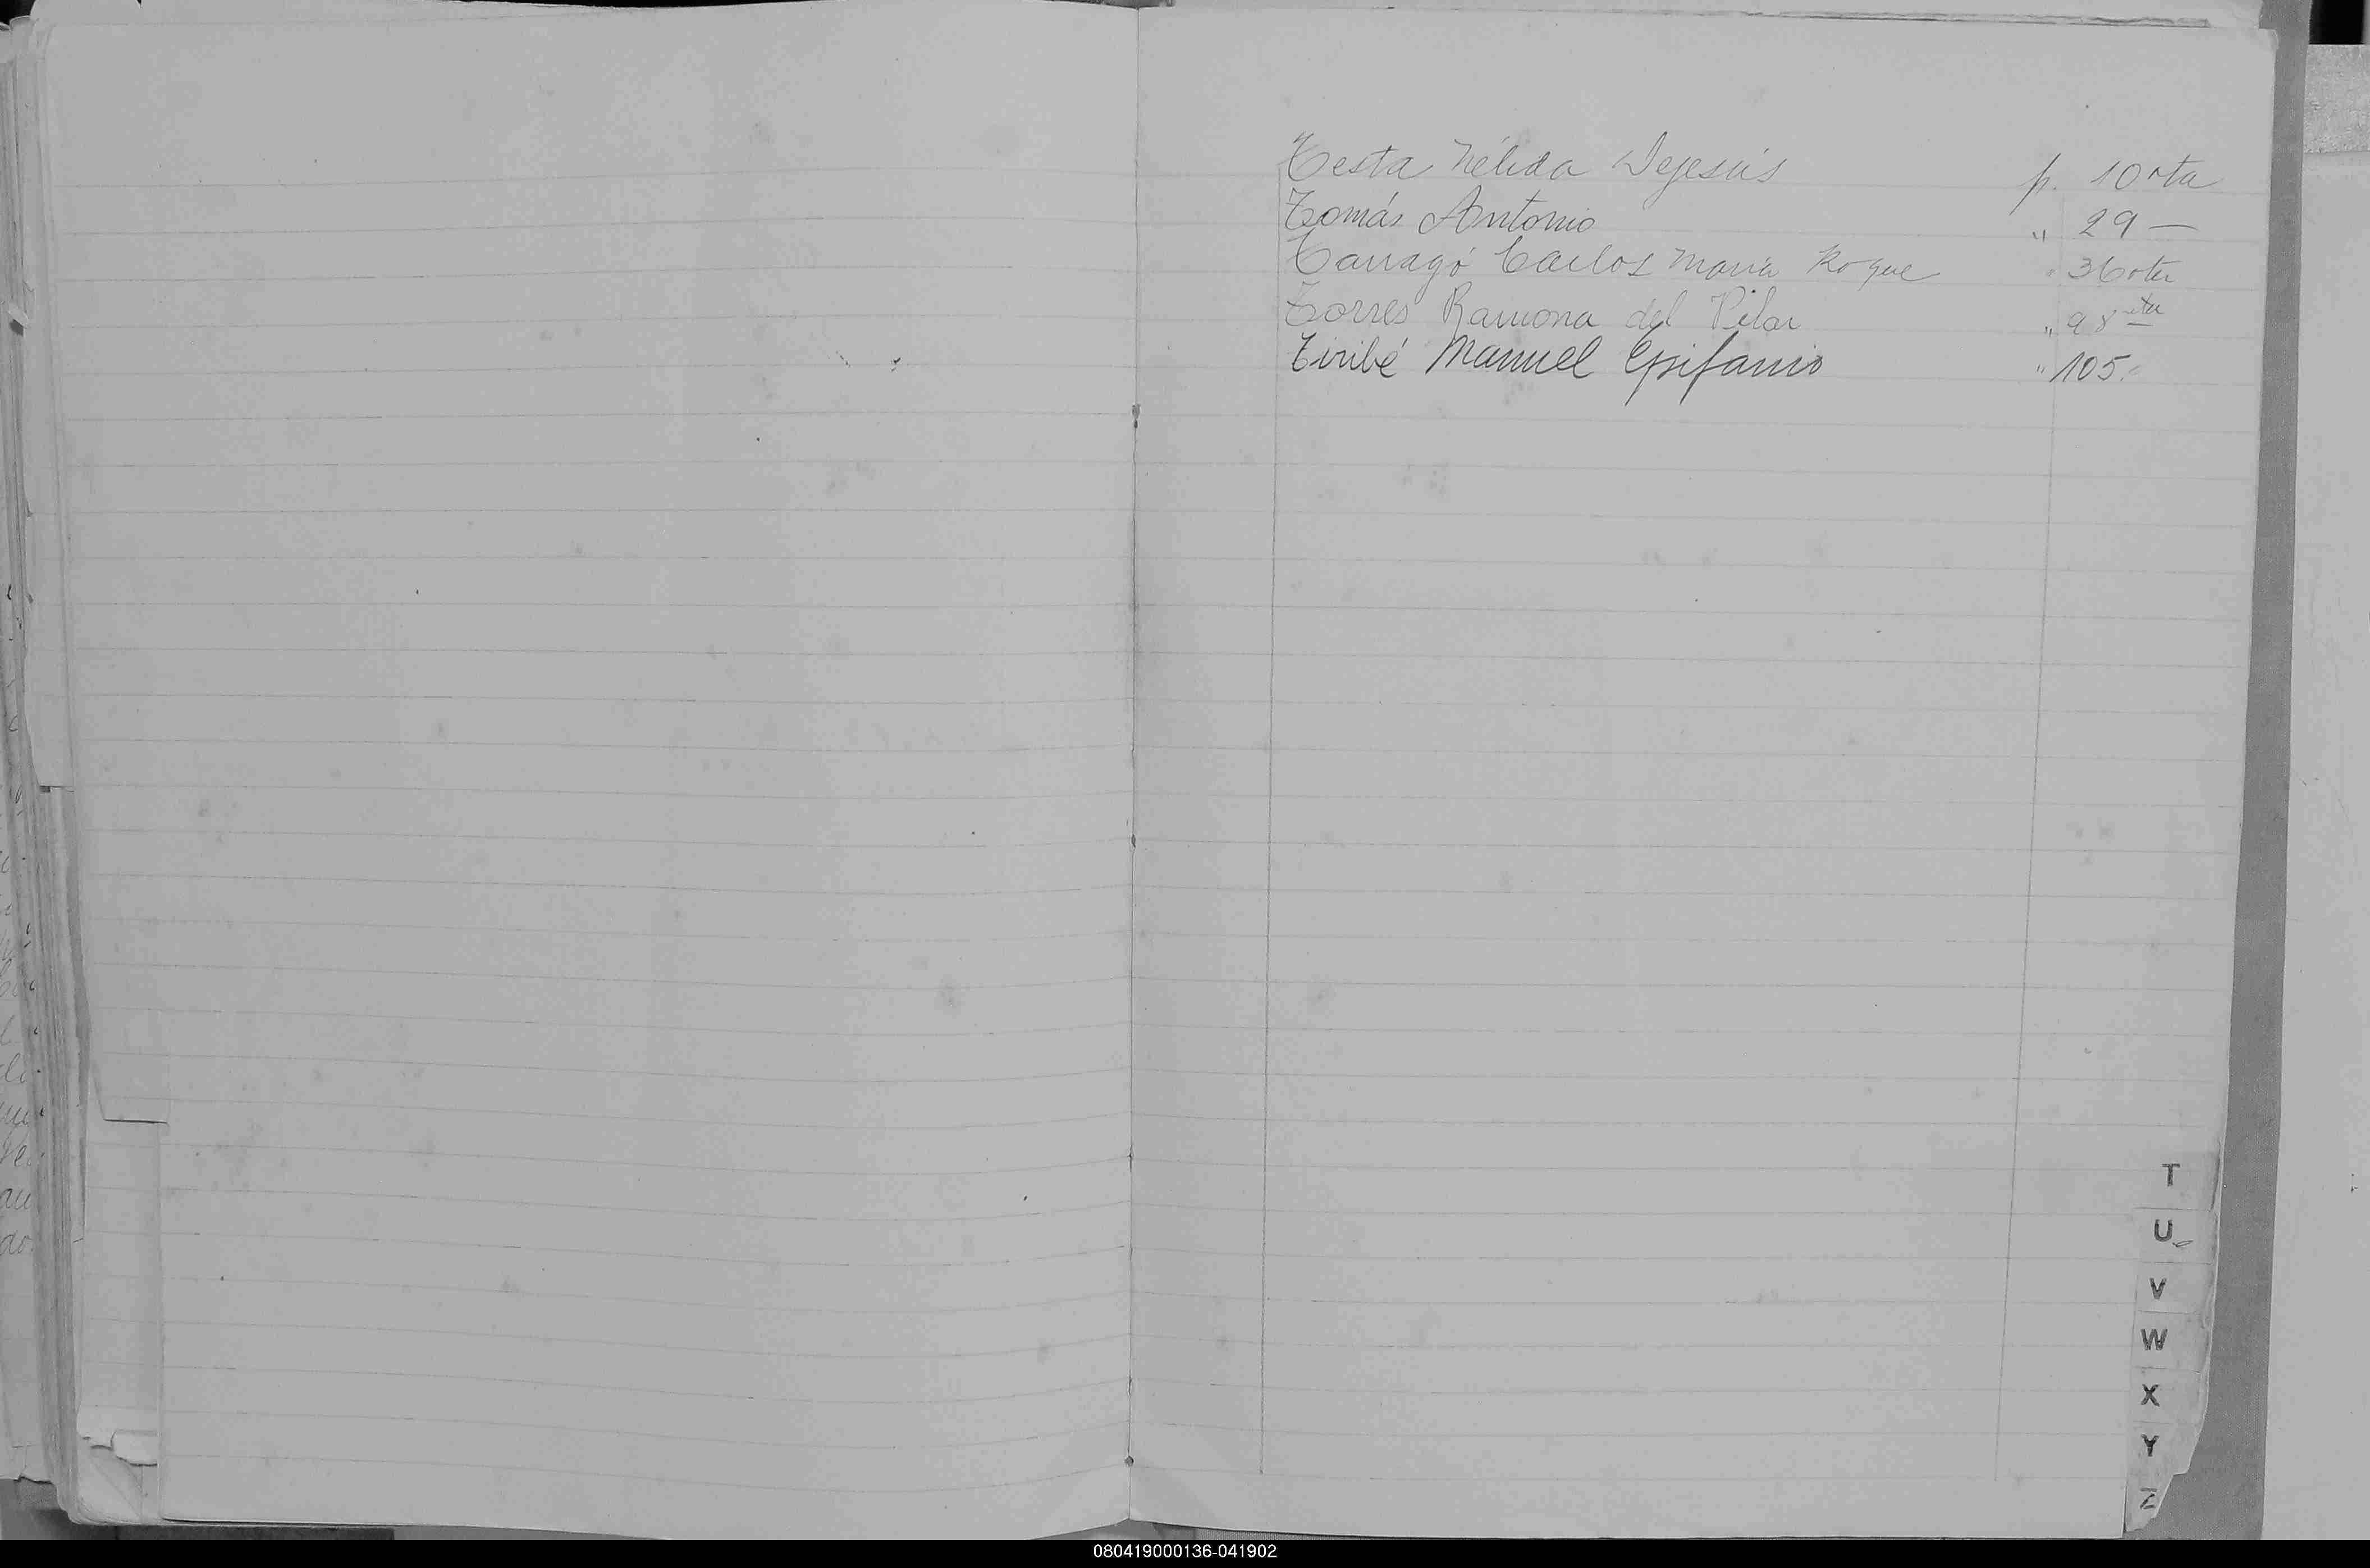 Testa Nélida Dejesús p. 10 vta
Tomás Antonio " 29 —
Tarragó Carlos María Roque " 36 vta
Torres Ramona del Pilar " 98 vta
Tiribé Manuel Epifanio " 105.-
T
U
V
W
X
Y
Z
080419000136-041902